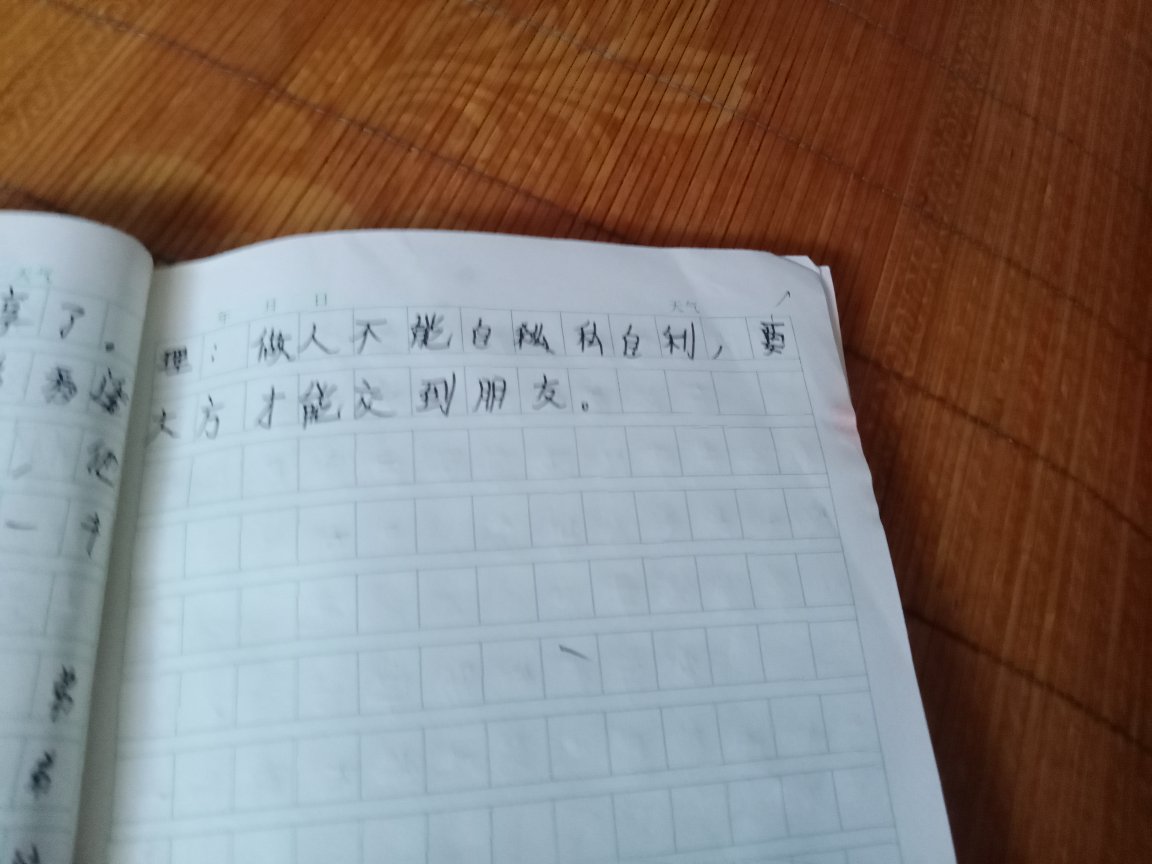 天气
享了。
年 月 日 天气
理：做人不能自私私自利，要
大方才能交到朋友。